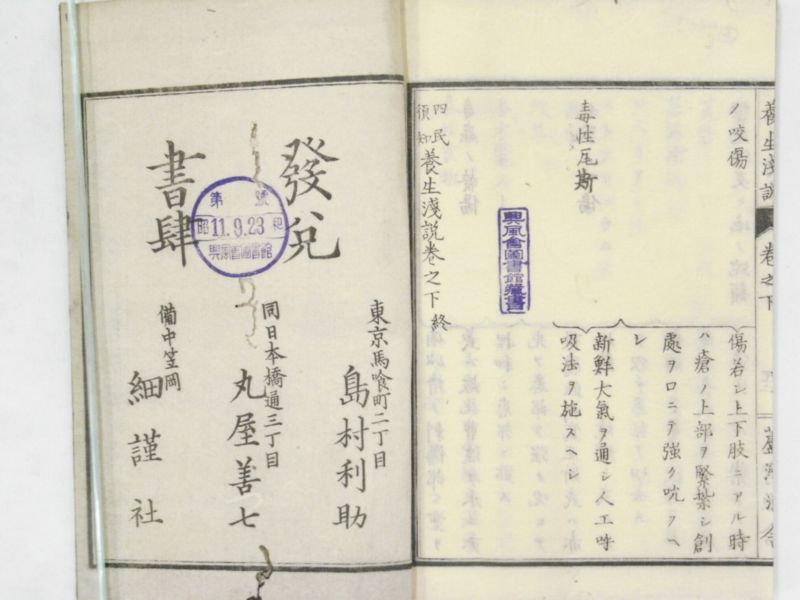 養生淺説 卷之下
ノ咬傷
傷若シ上下肢ニアル時
ハ瘡ノ上部ヲ緊紮シ創
處ヲ口ニテ強ク吮フヘ
シ
毒性瓦斯
新鮮大氣ヲ通シ人工呼
吸法ヲ施スヘシ
四民須知養生淺説卷之下終
興風會圖書館藏書
發兌
書肆
第 號
昭 11.9.23 和
興風會圖書館
東京馬喰町二丁目
島村利助
同日本橋通三丁目
丸屋善七
備中笠岡
細謹社